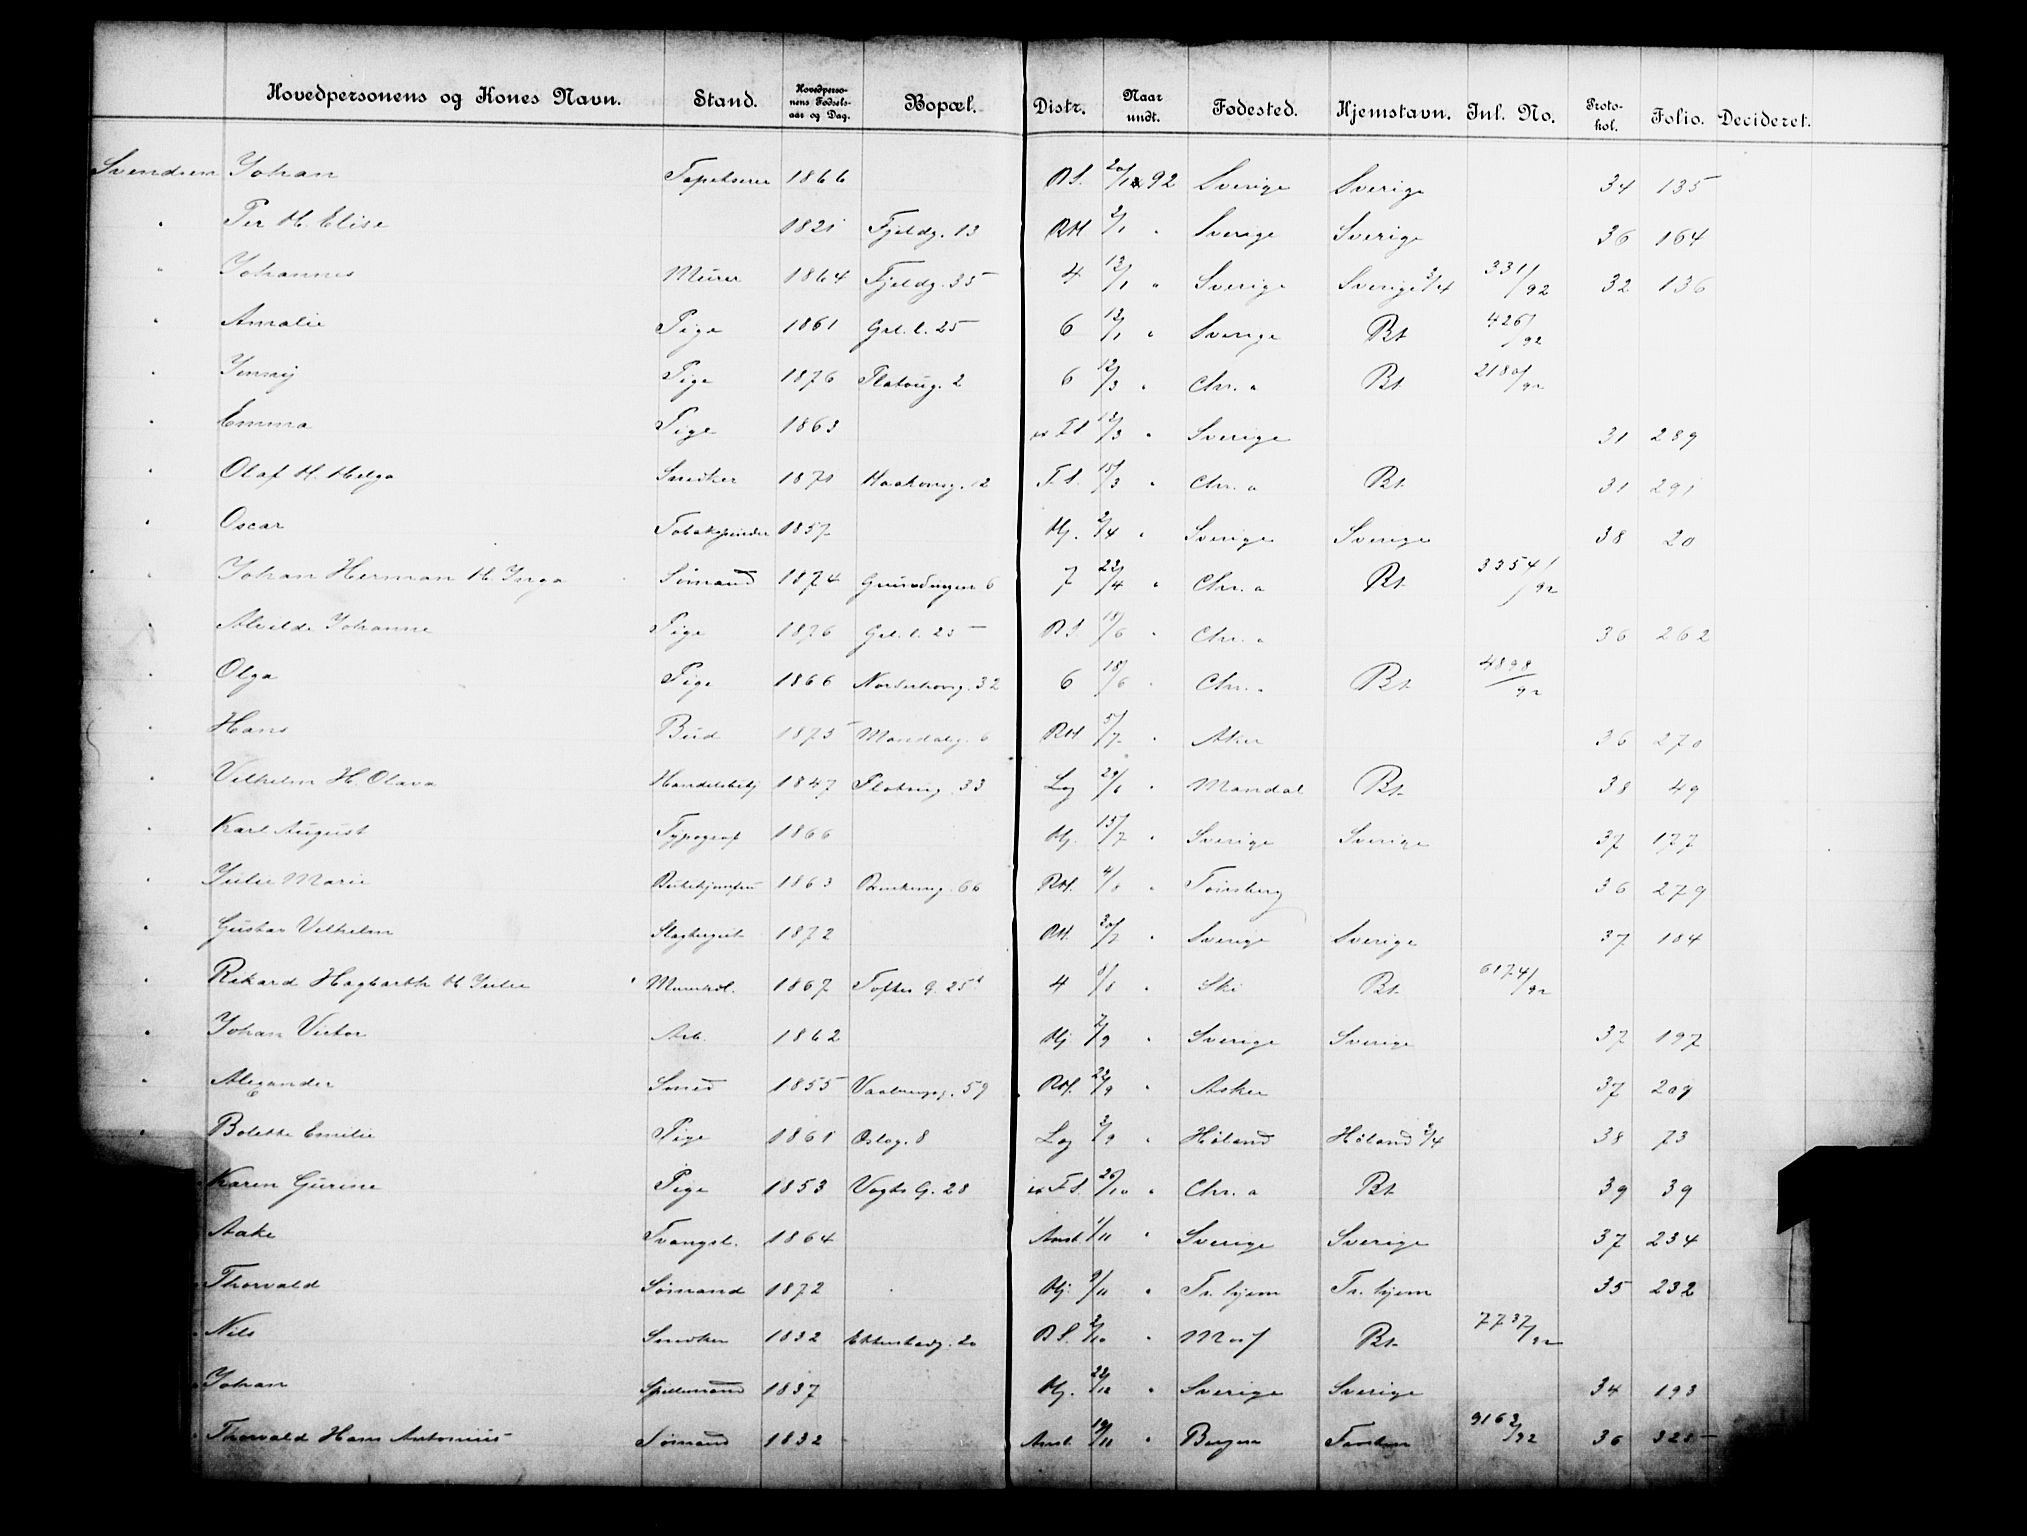 Hovedpersonens og Kones Navn. Stand. Hovedpersonens Fødselsaar og Dag. Bopæl. Distr. Naar undt. Fødested. Hjemstavn. Inl. No. Protokol. Folio. Decideret.
Svendsen Johan Tapetserer 1866 BS. 20/1 92 Sverige Sverige 34 135
" Per H. Elise 1821 Fjeldg. 13 RH 2/1 " Sverige Sverige 36 164
" Johannes Murer 1864 Fjeldg. 35 4 12/1 " Sverige Sverige 3/4 331/92 32 136
" Amalie Pige 1861 Grl. l. 25 6 12/1 " Sverige Bt. 426/92
" Jenny Pige 1876 Platoug. 2 6 12/3 " Chr. a Bt. 2180/92
" Emma Pige 1863 ex FS 12/3 " Sverige 31 289
" Olaf H. Helga Snedker 1871 Haakonsg. 12 F.S. 15/3 " Chr. a Bt. 31 291
" Oscar Tobakspinder 1857 Hj. 2/4 " Sverige Sverige 38 20
" Johan Herman H. Inga Sømand 1874 Grundingen 6 7 22/4 " Chr. a Bt. 3354/92
" Alvilde Johanne Pige 1876 Grl. l. 25 BS. 18/6 " Chr. a 36 262
" Olga Pige 1866 Norderhovg. 32 6 18/6 " Chr. a Bt. 4898/92
" Hans Bud 1875 Mandalsg. 6 RH 5/7 " Aker 36 270
" Vilhelm H. Olava Handelsbetj 1847 Platoug. 33 Log 29/6 " Mandal Bt. 38 49
" Karl August Typograf 1866 Hj. 13/7 " Sverige Sverige 37 177
" Julie Marie 1863 66 RH. 4/8 " Tønsberg 36 279
" Gustav Vilhelm Slagtergut 1872 RH. 30/7 " Sverige Sverige 37 184
" Rikard Hagbarth H. Julie Murerhdl. 1867 Toftes G. 25b 4 8/8 " Ski Bt. 6174/92
" Johan Victor Arb. 1862 Hj 7/9 " Sverige Sverige 37 197
" Alexander Smed 1855 Vaalerengg. 59 RH. 22/9 " Asker 37 209
" Bolette Emilie Pige 1861 Oslog. 8 Log 2/9 " Høland Høland 3/4 38 73
" Karen Gurine Pige 1853 Vogts G. 28 ex F.S. 26/10 " Chr. a Bt. 39 39
Aake Tvangsl. 1864 Anst. 1/11 " Sverige Sverige 37 234
" Thorvald Sømand 1872 Hj. 9/11 " Tr. hjem Tr. hjem 35 232
" Nils Snedker 1832 Ekkersbedg. 20 BS. 2/10 " Moss Bt. 7737/92
" Johan Spillemand 1837 Hj. 22/12 " Sverige Sverige 34 193
" Thorvald Hans Antonius Sømand 1832 Anst. 19/11 " Bergen 9162/92 36 325